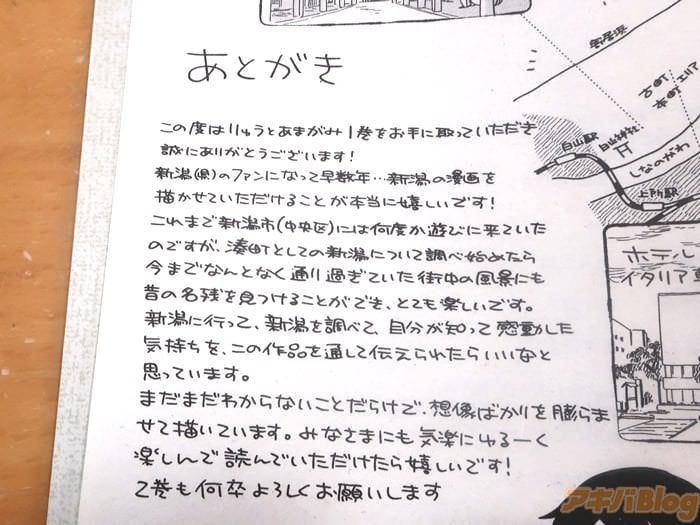 あとがき
この度はりゅうとあまがみ1巻をお手に取っていただき
誠にありがとうございます!
新潟(県)のファンになって早数年…新潟の漫画を
描かせていただけることが本当に嬉しいです!
これまで新潟市(中央区)には何度か遊びに来ていた
のですが、湊町としての新潟について調べ始めたら
今までなんとなく通り過ぎていた街中の風景にも
昔の名残を見つけることができ、とても楽しいです。
新潟に行って、新潟を調べて、自分が知って感動した
気持ちを、この作品を通して伝えられたらいいなと
思っています。
まだまだわからないことだらけで、想像ばかりを膨らま
せて描いています。みなさまにも気楽にゆるーく
楽しんで読んでいただけたら嬉しいです!
2巻も何卒よろしくお願いします
寄居浜
古町
本町エリア
白山駅
白山神社
しなのがわ
上所駅
ホテル
イタリア
アキバBlog